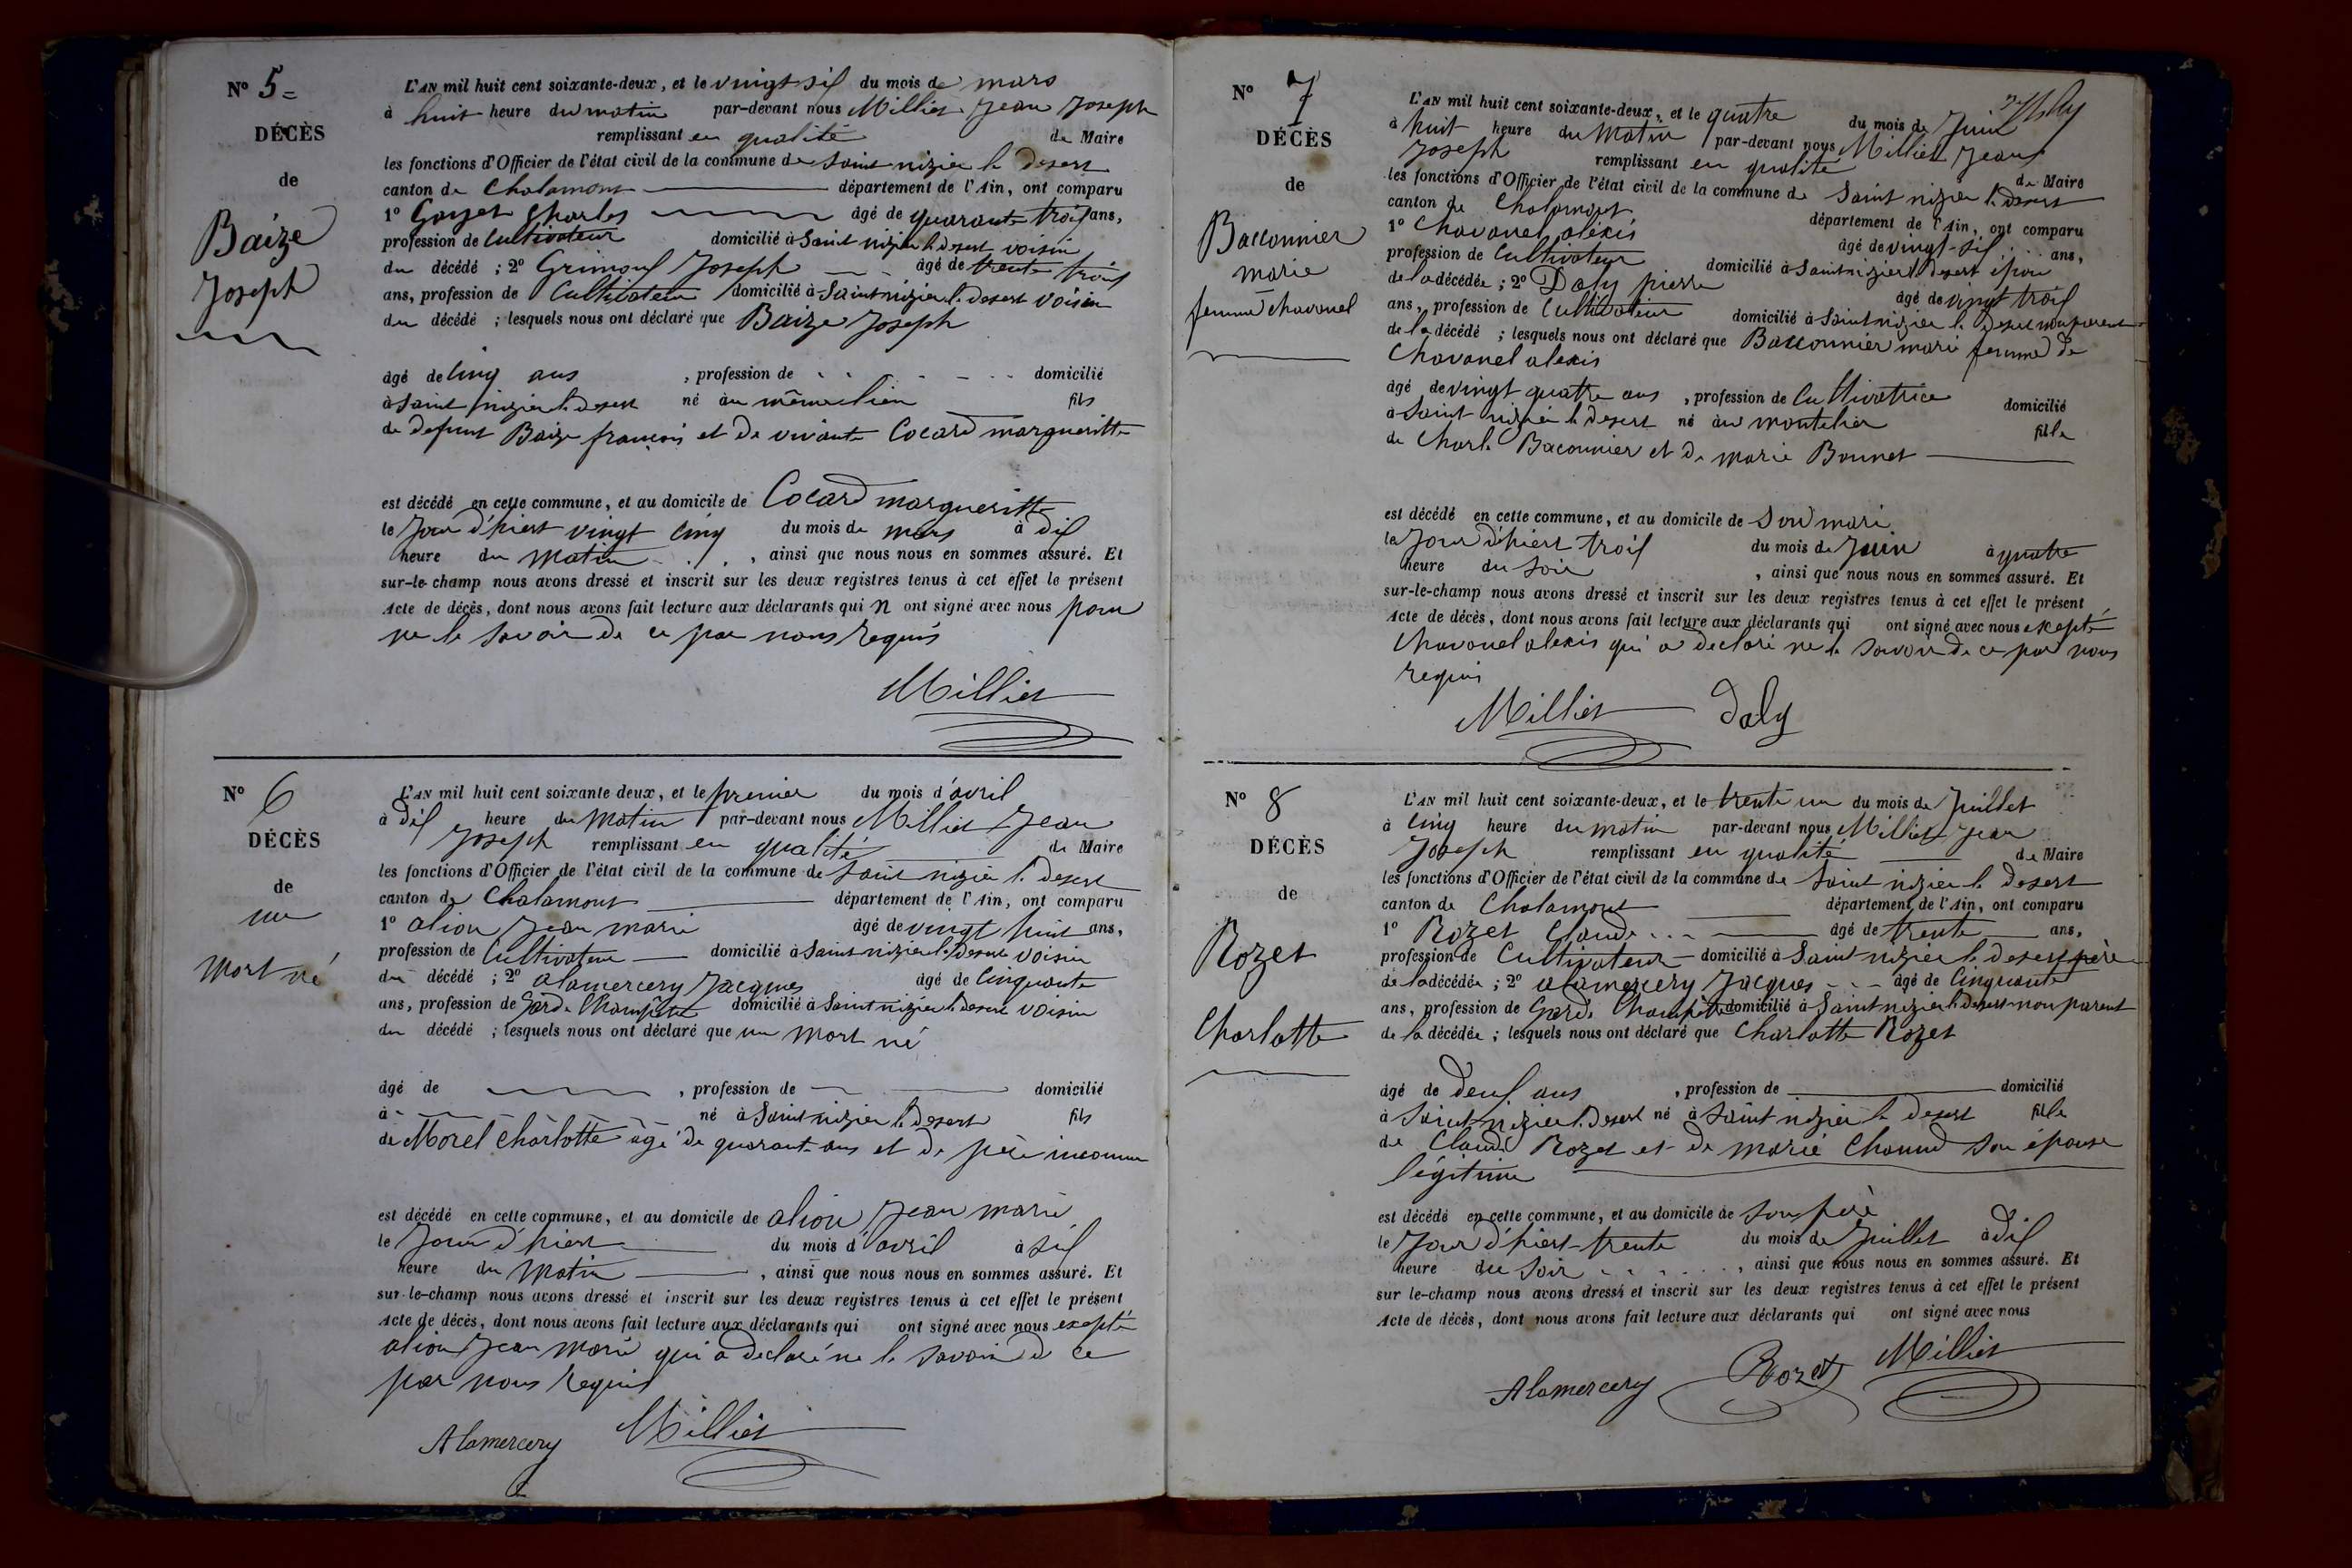 N° 5
DÉCÈS
de
Baize
Joseph
L'AN mil huit cent soixante-deux, et le vingt six du mois de mars
à huit heure du matin par-devant nous Milliet Jean Joseph
remplissant en qualité de Maire
les fonctions d'Officier de l'état civil de la commune de Saint nizier le desert
canton de Chalamont département de l'Ain, ont comparu
1° Goyet Charles âgé de quarante trois ans,
profession de Cultivateur domicilié à Saint nizier le desert voisin
du décédé ; 2° Joseph âgé de trente trois
ans, profession de Cultivateur domicilié à Saint nizier le desert voisin
du décédé ; lesquels nous ont déclaré que Baize Joseph
âgé de cinq ans , profession de domicilié
à Saint nizier le desert né au même lieu fils
de defunt Baize françois et de vivante Cocard margueritte
est décédé en cette commune, et au domicile de Cocard margueritte
le Jour d'hiert vingt cinq du mois de mars à dix
heure du matin , ainsi que nous nous en sommes assuré. Et
sur-le-champ nous avons dressé et inscrit sur les deux registres tenus à cet effet le présent
Acte de décès, dont nous avons fait lecture aux déclarants qui n ont signé avec nous pour
ne le savoir de ce par nous requis
Milliet
N° 6
DÉCÈS
de
un
mort né
L'AN mil huit cent soixante-deux, et le premier du mois d'avril
à dix heure du matin par-devant nous Milliet Jean
Joseph remplissant en qualité de Maire
les fonctions d'Officier de l'état civil de la commune de Saint nizier le desert
canton de Chalamont département de l'Ain, ont comparu
1° alion Jean marie âgé de vingt huit ans,
profession de Cultivateur domicilié à Saint nizier le desert voisin
du décédé ; 2° alamercery Jacques âgé de cinquante
ans, profession de Garde Champêtre domicilié à Saint nizier le desert voisin
du décédé ; lesquels nous ont déclaré que un mort né
âgé de , profession de domicilié
à né à Saint nizier le desert fils
de Morel charlotte âgé de quarant ans et de père inconnu
est décédé en cette commune, et au domicile de alion Jean marie
le Jour d'hiert du mois d'avril à six
heure du matin , ainsi que nous nous en sommes assuré. Et
sur-le-champ nous avons dressé et inscrit sur les deux registres tenus à cet effet le présent
Acte de décès, dont nous avons fait lecture aux déclarants qui ont signé avec nous excepté
alion Jean marie qui a declaré ne le savoir de ce
par nous requis
Alamercery Milliet
N° 7
DÉCÈS
de
Bacconnier
marie
femme chavanel
L'AN mil huit cent soixante-deux, et le quatre du mois de Juin
à huit heure du matin par-devant nous Milliet Jean
Joseph remplissant en qualité de Maire
les fonctions d'Officier de l'état civil de la commune de Saint nizier le desert
canton de Chalamont département de l'Ain, ont comparu
1° Chavanel alexis âgé de vingt-six ans,
profession de Cultivateur domicilié à Saint nizier le desert époux
de la décédée ; 2° Daly pierre âgé de vingt trois
ans, profession de Cultivateur domicilié à Saint nizier le desert non parent
de la décédé ; lesquels nous ont déclaré que Bacconnier marie femme de
Chavanel alexis
âgé de vingt quatre ans , profession de Cultivatrice domicilié
à Saint nizier le desert né au montelier fille
de Charle Baconnier et de marie Bonnet
est décédé en cette commune, et au domicile de son mari
le Jour d'hiert trois du mois de Juin à quatre
heure du soir , ainsi que nous nous en sommes assuré. Et
sur-le-champ nous avons dressé et inscrit sur les deux registres tenus à cet effet le présent
Acte de décès, dont nous avons fait lecture aux déclarants qui ont signé avec nous excepté
Chavanel alexis qui a declaré ne le savoir de ce par nous
requis
Milliet Daly
N° 8
DÉCÈS
de
Rozet
Charlotte
L'AN mil huit cent soixante-deux, et le trente un du mois de Juillet
à cinq heure du matin par-devant nous Milliet Jean
Joseph remplissant en qualité de Maire
les fonctions d'Officier de l'état civil de la commune de Saint nizier le desert
canton de Chalamont département de l'Ain, ont comparu
1° Rozet Claude âgé de trente ans,
profession de Cultivateur domicilié à Saint nizier le desert père
de la décédée ; 2° alamercery Jacques âgé de Cinquante
ans, profession de Garde Champêtre domicilié à Saint nizier le desert non parent
de la décédée ; lesquels nous ont déclaré que Charlotte Rozet
âgé de deux ans , profession de domicilié
à Saint nizier le desert né à Saint nizier le desert fille
de Claude Rozet et de marie Chanud son épouse
légitime
est décédé en cette commune, et au domicile de son père
le Jour d'hiert trente du mois de Juillet à dix
heure du soir , ainsi que nous nous en sommes assuré. Et
sur le-champ nous avons dressé et inscrit sur les deux registres tenus à cet effet le présent
Acte de décès, dont nous avons fait lecture aux déclarants qui ont signé avec nous
Alamercery Rozet Milliet